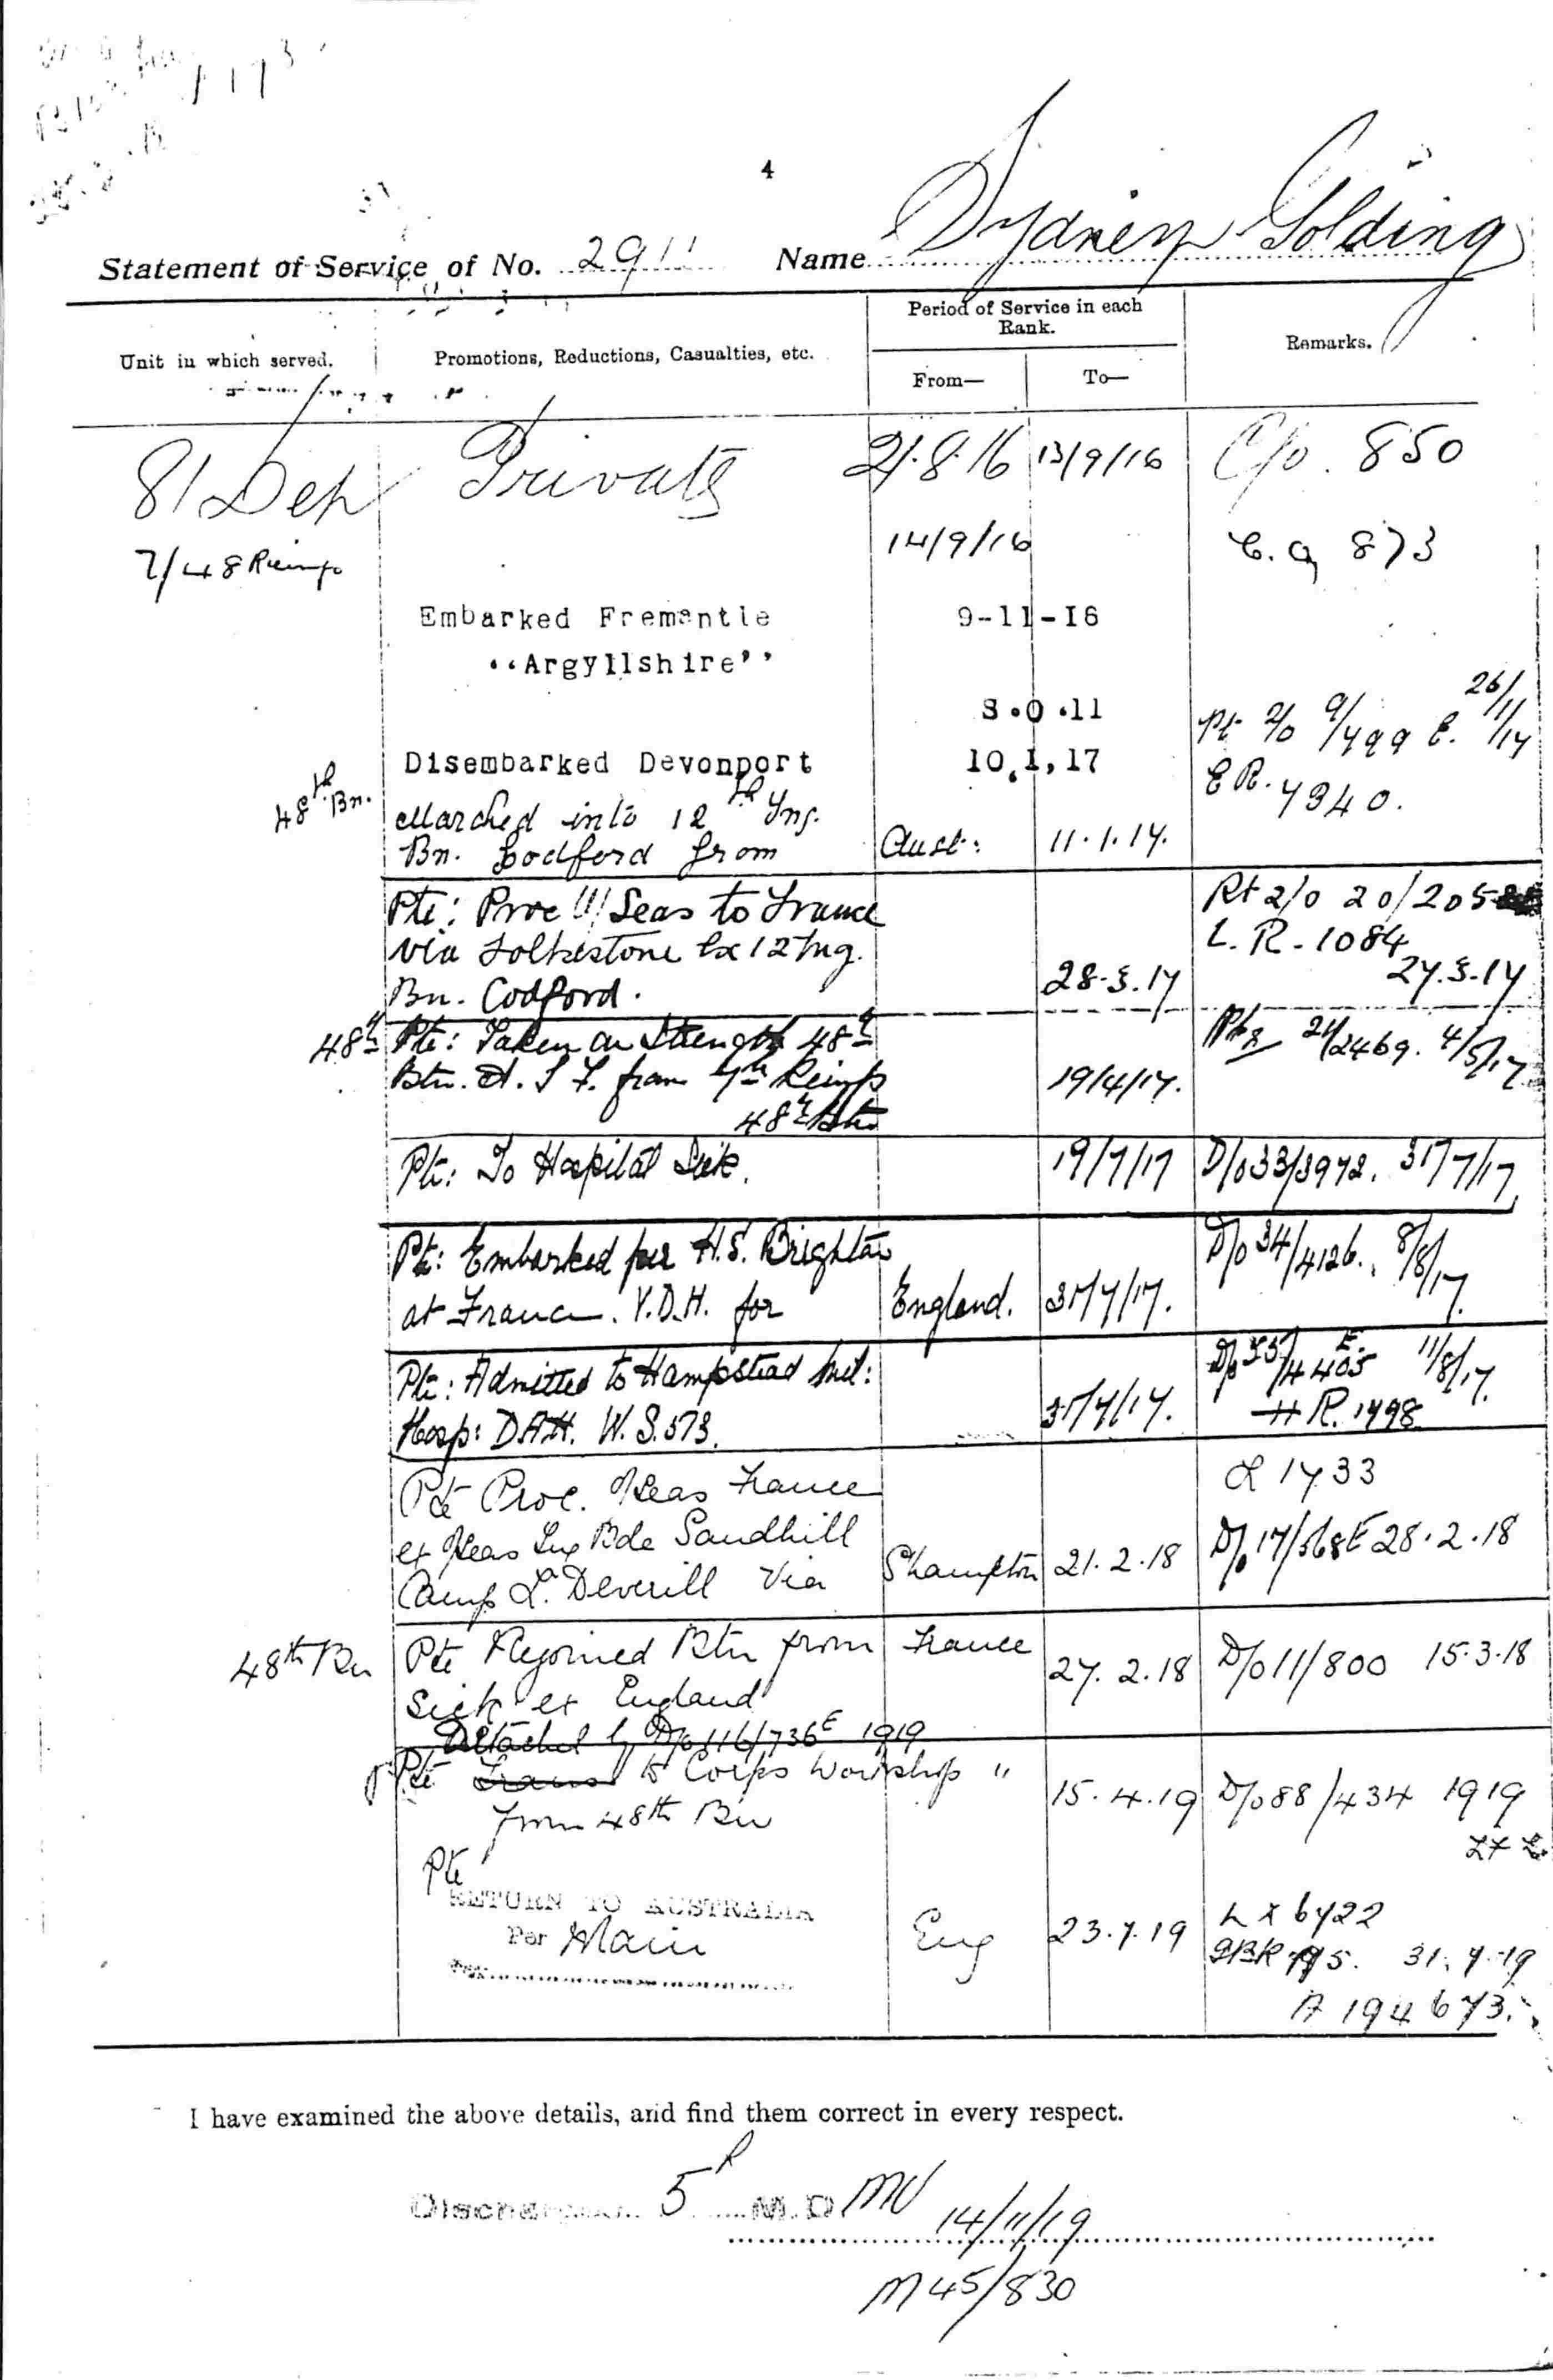 4
Statement of Service of No. 2911 Name Sydney Golding
Unit in which served. Promotions, Reductions, Casualties, etc. Period of Service in each Rank. Remarks.
From— To—
81 Dep Private 21.8.16 13/9/16 C/o. 850
7/48 Reinfs 14/9/16 873
Embarked Fremantle 9-11-16
"Argyllshire"
S.O.11
Disembarked Devonport 10.1,17
48th Bn. Marched into 12th Tng. E R. 4940.
Bn. Codford from Aust: 11.1.17.
Pte: Proc O/Seas to France Pt 2/0 20/205
via Folkestone Ex 12 Tng. L.R. 1084
Bn. Codford. 28.3.17 27.3.17
48th Pte: Taken on Strength 48th 21/2469. 4/5/17
Btn. A.I.F. from 7th Reinfs 19/4/17.
48th Btn
Pte: To Hospital Sick. 19/7/17 D/o 33/3972. 31/7/17
Pte: Embarked per H.S. Brighton D/o 34/4126. 8/8/17.
at France. V.D.H. for England. 31/7/17.
Pte: Admitted to Hampstead Mil: D/o 35/4405 E. 11/8/17.
Hosp: DAH. W.S.573. 31/7/17. H R. 1798
Pte Proc. O/Seas France L 1733
ex O/Seas Trg Bde Sandhill
Camp L. Deverill Via S'hampton 21.2.18 D/o 17/568E 28.2.18
48th Bn Pte Rejoined Btn from France 27.2.18 D/o 11/800 15.3.18
Sick ex England
Detached by D/o 116/736E 1919
Pte Trans to Corps Workshop " 15.4.19 D/o 88/434 1919
from 48th Bn
Pte
RETURN TO AUSTRALIA L X 6722
Per Main Eng 23.7.19 31.7.19
A 194673.
I have examined the above details, and find them correct in every respect.
Discharged 5 M.D. 14/11/19
M45/830